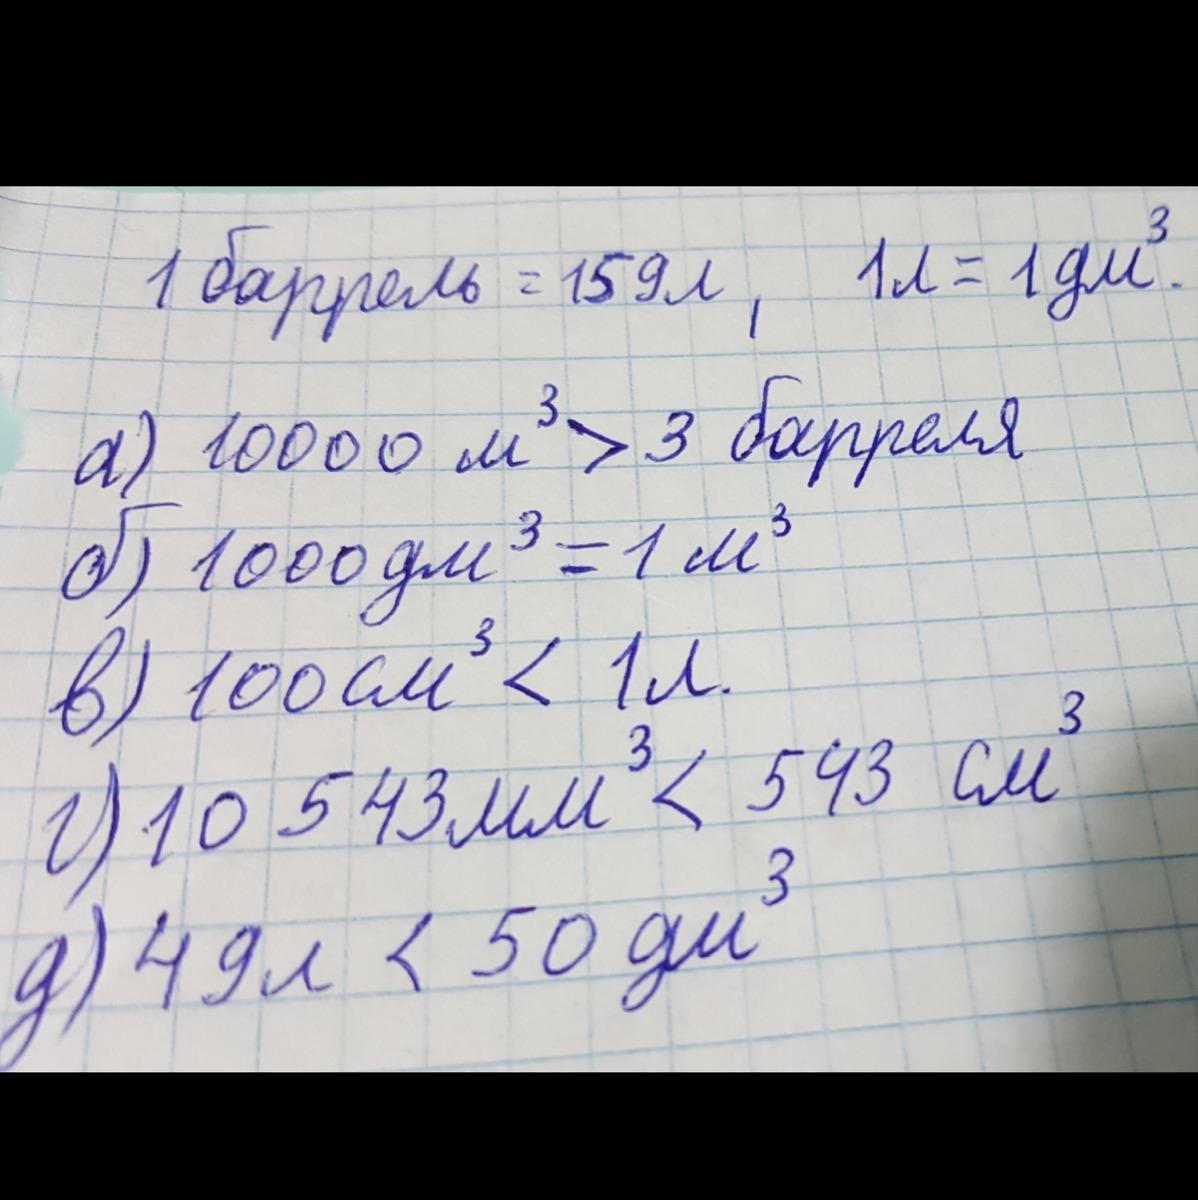 1 баррель = 159л, 1л = 1дм³.
а) 10000 м³ > 3 барреля
б) 1000дм³ = 1 м³
в) 100см³ < 1л.
г) 10 543мм³ < 543 см³
д) 49л < 50 дм³